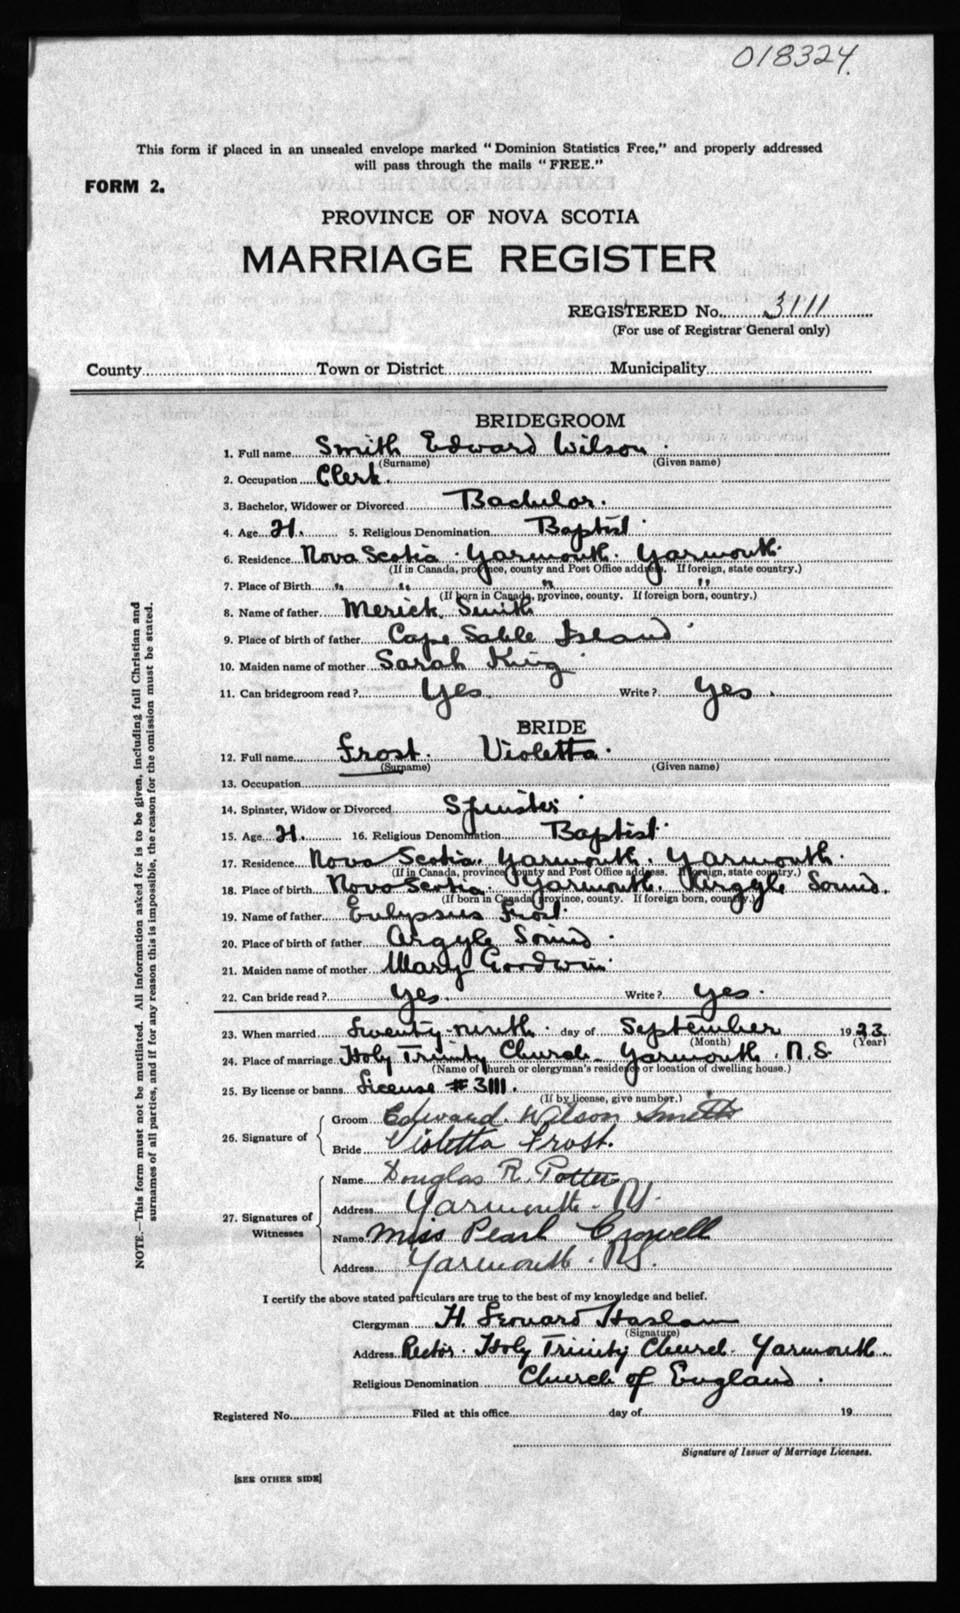 018324.
This form if placed in an unsealed envelope marked "Dominion Statistics Free," and properly addressed
will pass through the mails "FREE."
FORM 2.
PROVINCE OF NOVA SCOTIA
MARRIAGE REGISTER
REGISTERED No. 3111
(For use of Registrar General only)
County Town or District Municipality
BRIDEGROOM
1. Full name Smith Edward Wilson.
(Surname) (Given name)
2. Occupation Clerk.
3. Bachelor, Widower or Divorced Bachelor.
4. Age 5. Religious Denomination Baptist.
6. Residence Nova Scotia. Yarmouth. Yarmouth.
(If in Canada, province, county and Post Office address. If foreign, state country.)
7. Place of Birth " " " "
(If born in Canada, province, county. If foreign born, country.)
8. Name of father Merick. Smith
9. Place of birth of father Cape Sable Island.
10. Maiden name of mother Sarah King
11. Can bridegroom read? Yes. Write? Yes.
BRIDE
12. Full name Frost. Violetta.
(Surname) (Given name)
13. Occupation
14. Spinster, Widow or Divorced Spinster.
15. Age 16. Religious Denomination Baptist.
17. Residence Nova Scotia. Yarmouth. Yarmouth.
(If in Canada, province county and Post Office address. If foreign, state country.)
18. Place of birth Nova Scotia. Yarmouth. Argyle Sound.
(If born in Canada, province, county. If foreign born, country.)
19. Name of father Frost.
20. Place of birth of father Argyle Sound.
21. Maiden name of mother Mary Goodwin.
22. Can bride read? Yes. Write? Yes.
23. When married Twenty-ninth. day of September 1923
(Month) (Year)
24. Place of marriage Holy Trinity Church. Yarmouth. N.S.
(Name of church or clergyman's residence or location of dwelling house.)
25. By license or banns License #3111.
(If by license, give number.)
26. Signature of
Groom Edward. Wilson Smith
Bride Violetta Frost.
27. Signatures of Witnesses
Name Douglas R. Potter
Address Yarmouth. N.S.
Name Miss Pearl Crowell
Address Yarmouth. N.S.
I certify the above stated particulars are true to the best of my knowledge and belief.
Clergyman H. Leonard Haslam
(Signature)
Address Rector. Holy Trinity Church. Yarmouth.
Religious Denomination Church of England.
Registered No. Filed at this office day of 19
Signature of Issuer of Marriage Licenses.
[SEE OTHER SIDE]
NOTE.—This form must not be mutilated. All information asked for is to be given, including full Christian and
surnames of all parties, and if for any reason this is impossible, the reason for the omission must be stated.